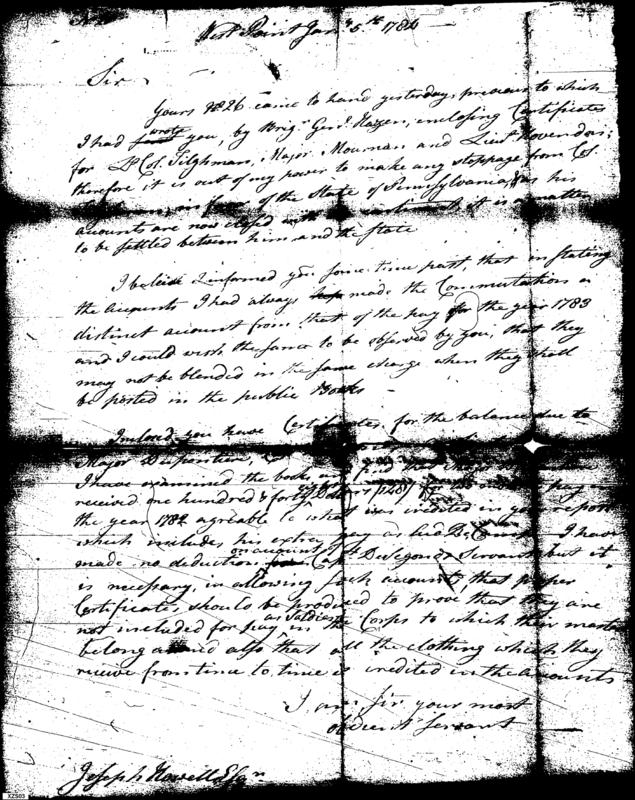 West Point Jany. 5th 1784
Sir
Yours 26 came to hand yesterday, previous to which
I had wrote you, by Brigr. Genl. Hazen, enclosing Certificates
for Lt Col. Tilghman, Major Mournan and Lieut. Hovendon;
therefore it is out of my power to make any stoppage from Col.
in favor of the State of Pennsylvania, as his
accounts are now closed it is a matter
to be settled between him and the state
I beleive I informed you some time past, that in stating
the accounts I had always made the Commutation a
distinct account from that of the pay for the year 1783
and I could wish the same to be observed by you, that they
may not be blended in the same charge when they shall
be posted in the public Books
Inclosed you have Certificates for the balance due to
Major
I have examined the books and find that Major
received one hundred & forty Dollars pay in
the year 1782 agreable to what was credited in your report
which includes his extra pay as I have
made no deduction on account of Capt. DeSegonds Servant but it
is necessary, in allowing such accounts, that proper
Certificates should be produced to prove that they are
not included for pay as Soldiers in the Corps to which their masters
belong and also that all the clothing which they
receive from time to time is credited in the accounts
I am Sir your most
obedient Servant
Joseph Howell Esqr
XZS03